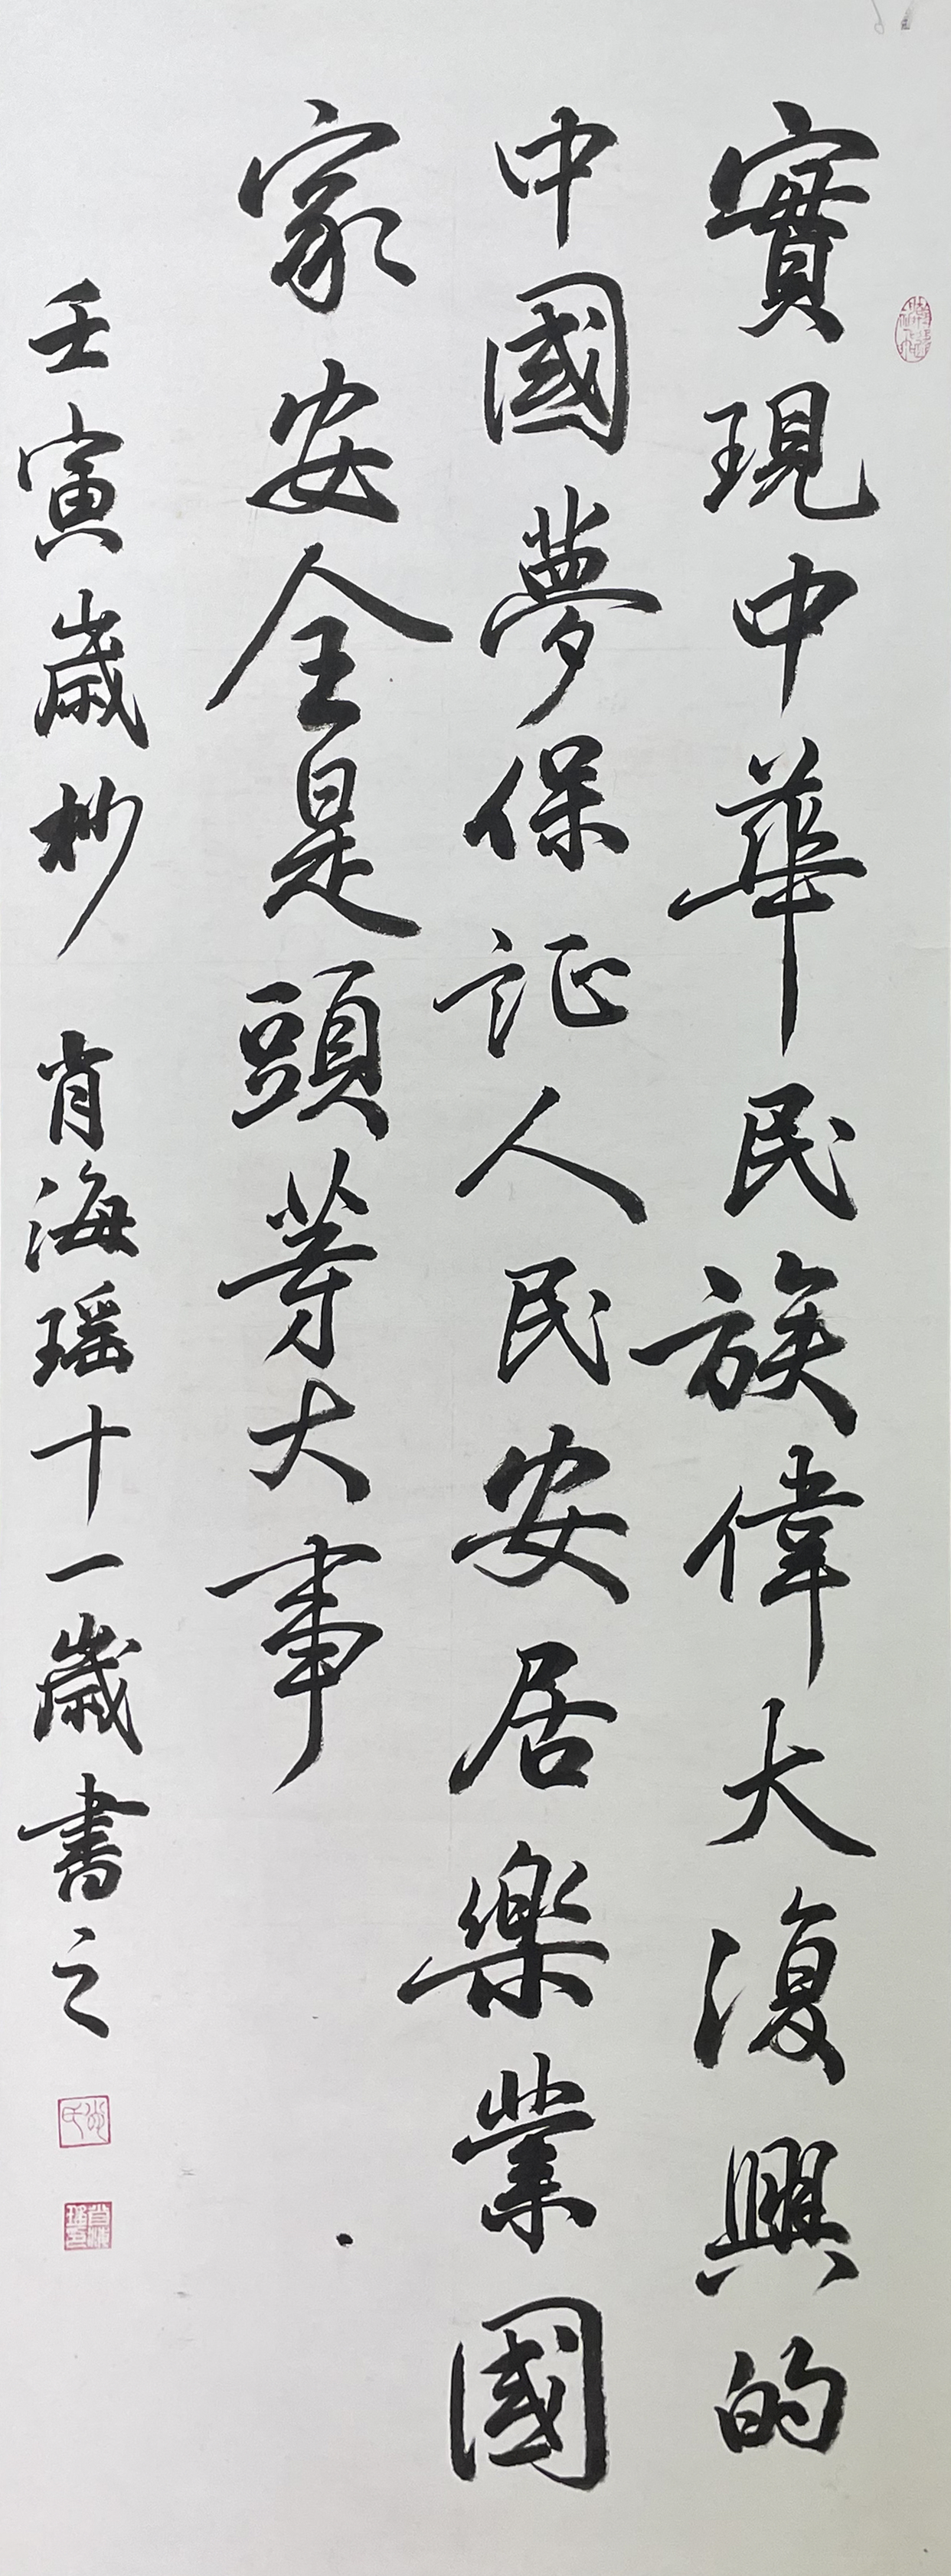 實現中華民族偉大復興的
中國夢保证人民安居樂業國
家安全是頭等大事
壬寅歲杪 肖海瑶十一歲書之